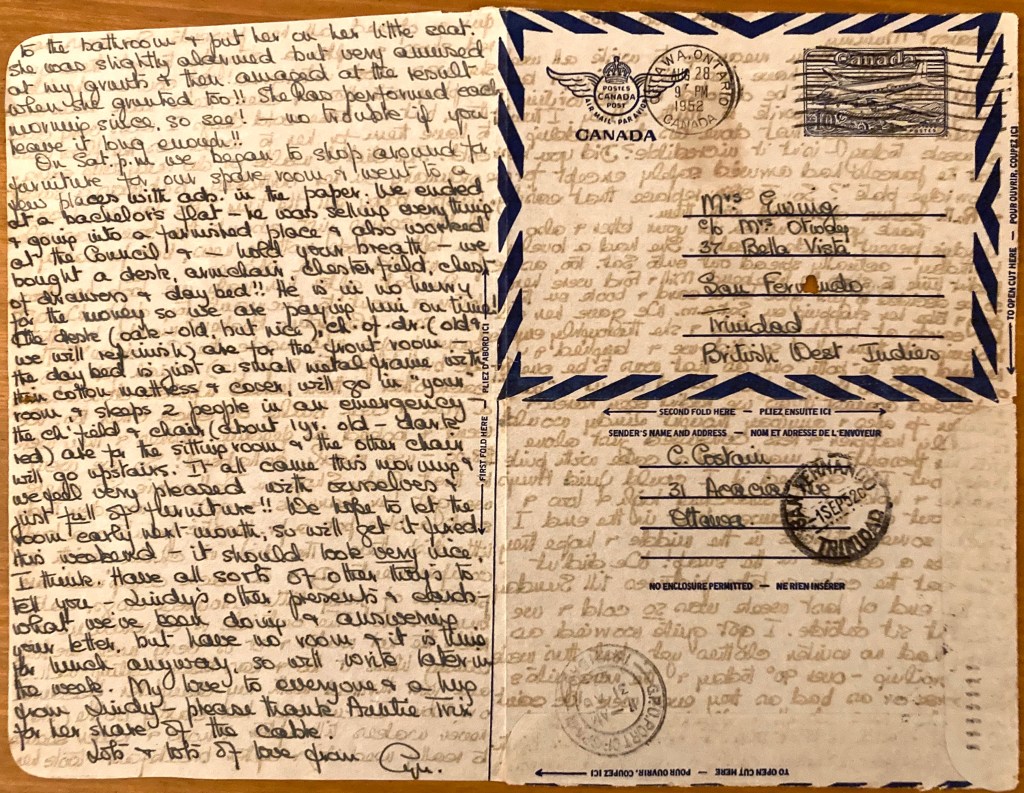 to the bathroom & put her on her little seat.
She was slightly alarmed but very amused
at my grunts & then amazed at the result
when she grunted too!! She has performed each
morning since, so see! – no trouble if you
leave it long enough!!
On Sat. p.m. we began to shop around for
furniture for our spare room & went to a
few places with ads. in the paper. We ended
at a bachelor's flat – he was selling everything
& going into a furnished place & also worked
at the Council & – hold your breath – we
bought a desk, armchair, chesterfield, chest
of drawers & day bed!! He is in no hurry
for the money so we are paying him on time!
The desk (oak – old, but nice), ch. of dr. (old &
we will refinish) are for the front room –
the day bed is just a small metal frame with
thin cotton mattress & cover, will go in "your"
room & sleeps 2 people in an emergency –
the ch'field & chair (about 1 yr. old – dark
red) are for the sitting room & the other chair
will go upstairs. It all came this morning &
we feel very pleased with ourselves &
just full of furniture!! We hope to let the
room early next month, so will get it fixed
this weekend – it should look very nice,
I think. Have all sorts of other things to
tell you – Lindy's other presents & cards –
what we've been doing & answering
your letter, but have no room & it is time
for lunch anyway, so will write later in
the week. My love to everyone & a hug
from Lindy – please thank Auntie Trix
for her share of the cable.
Lots & lots of love from
FIRST FOLD HERE — PLIEZ D'ABORD ICI
POSTES CANADA POST
AIR MAIL · PAR AVION
CANADA
OTTAWA, ONTARIO
AUG 28
9 PM
1952
CANADA
Canada
Mrs Ewing
c/o Mrs
37 Bella Vista
San Fernando
Trinidad
British West Indies
TO OPEN CUT HERE — POUR OUVRIR, COUPEZ ICI
SECOND FOLD HERE — PLIEZ ENSUITE ICI
SENDER'S NAME AND ADDRESS — NOM ET ADRESSE DE L'ENVOYEUR
C. Costain
31 Acacia Ave
Ottawa
SAN FERNANDO
1 SEP 52
TRINIDAD
NO ENCLOSURE PERMITTED — NE RIEN INSÉRER
G.P.O. PORT OF SPAIN
TO OPEN CUT HERE — POUR OUVRIR, COUPEZ ICI